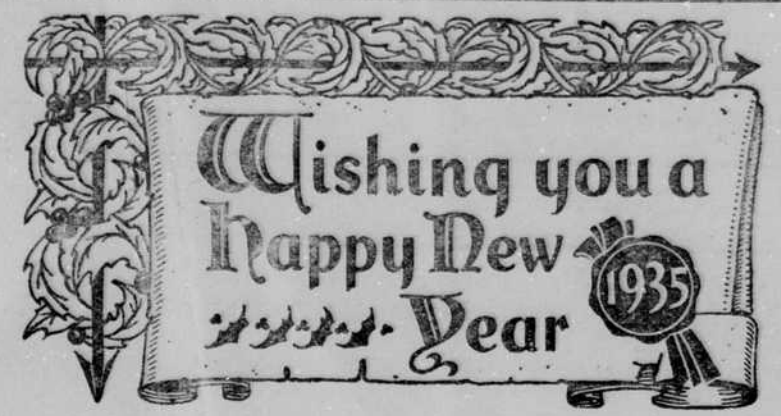 Wishing you a
Happy New
Year
1935